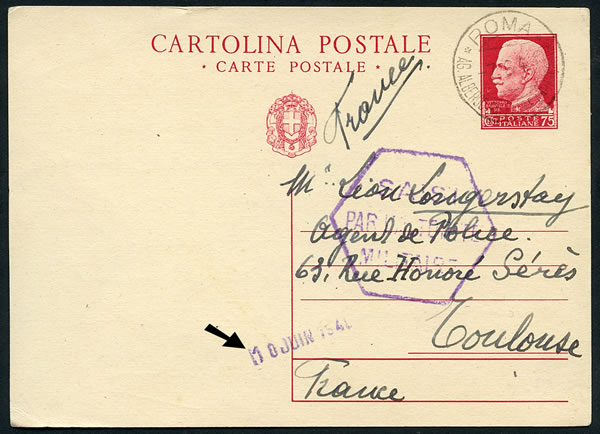 CARTOLINA POSTALE
* CARTE POSTALE *
ROMA
* AG. ALBER
POSTE
ITALIANE 75
France
SAISI
PAR
MILITAIRE
Mr Léon Longerstay
Agent de Police.
63, Rue Honoré Sérès
Toulouse
10 JUIN 1940
France